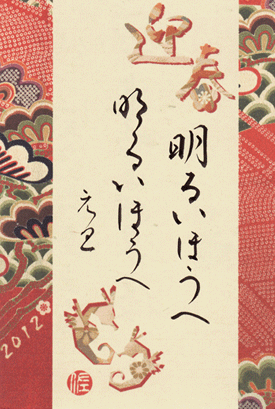 迎春
明るいほうへ
明るいほうへ
元旦
2012